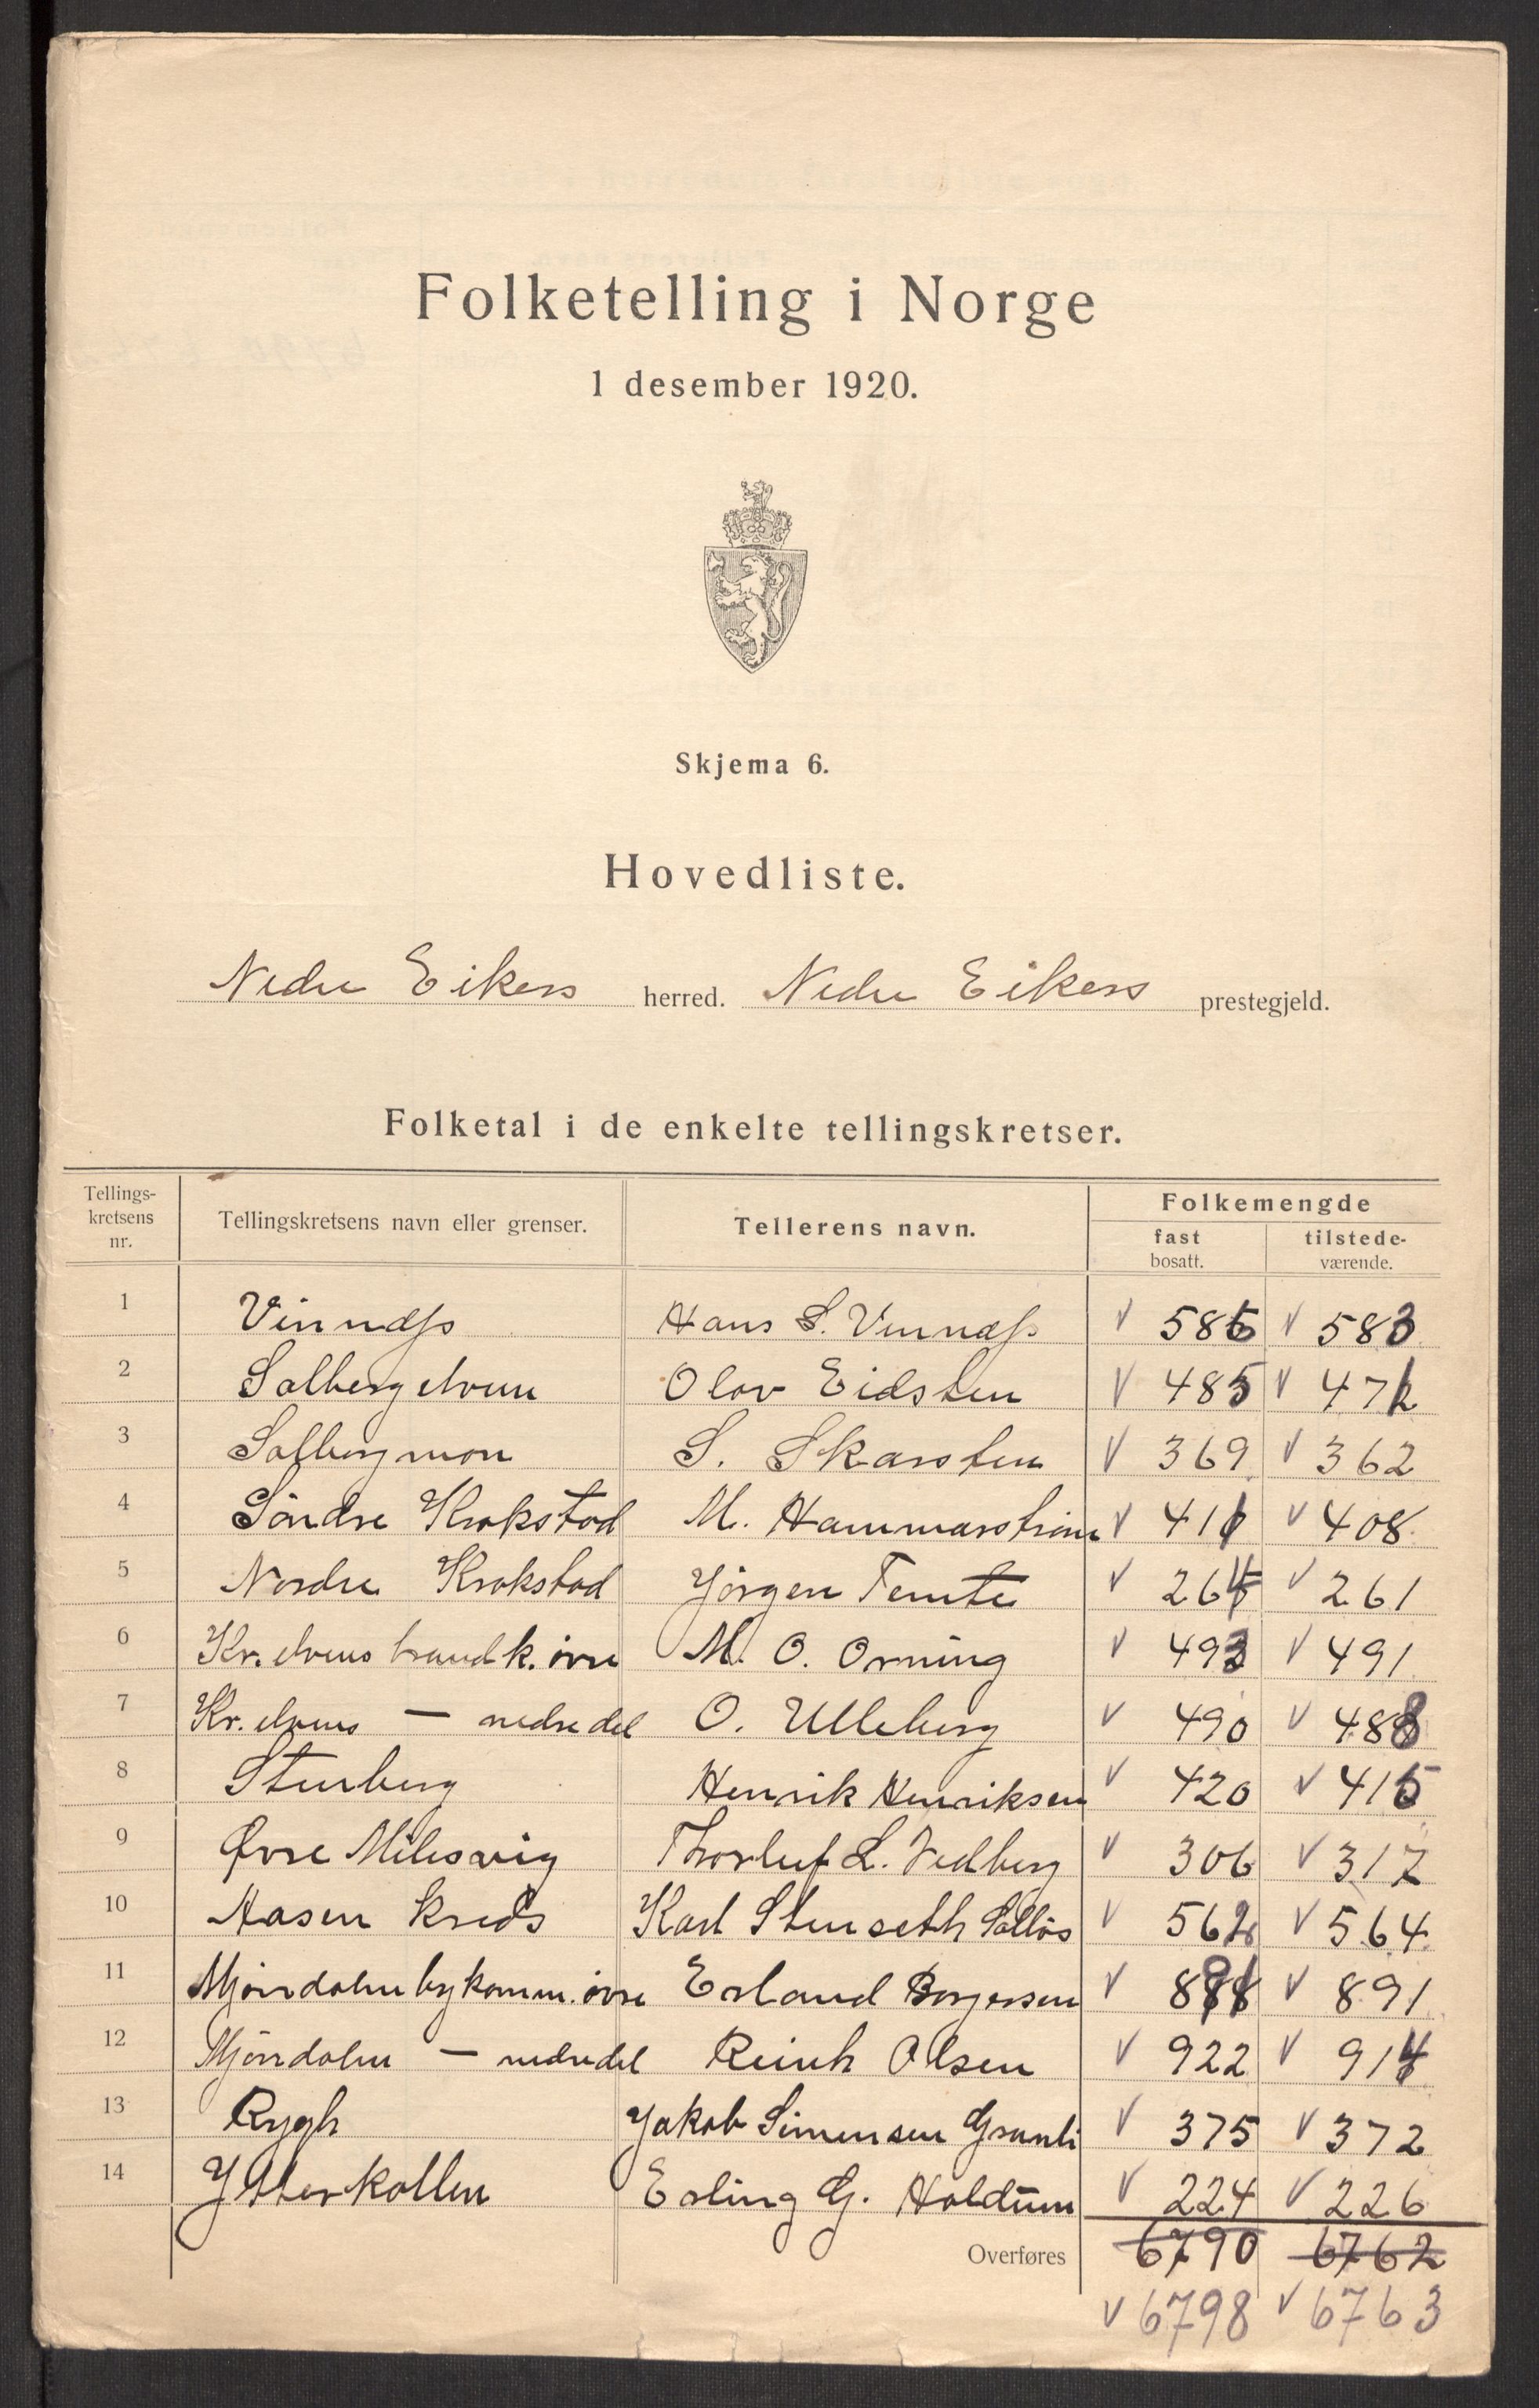 Folketelling i Norge
1 desember 1920.
Skjema 6.
Hovedliste.
Nedre Eikers herred. Nedre Eikers prestegjeld.
Folketal i de enkelte tellingskretser.
Tellings-kretsens nr. Tellingskretsens navn eller grenser. Tellerens navn. Folkemengde fast bosatt. tilstede-værende.
1 Vinnæss Hans S. Vinnæss v 586 v 583
2 Solbergelven Olav Eidsten v 485 v 471
3 Solbergmon S. Skarsten v 369 v 362
4 Söndre Krokstad M. Hammarström v 411 v 408
5 Nordre Krokstad Jörgen Temte v 264 v 261
6 Kr. elvens brandk. övre M. O. Orning v 493 v 491
7 Kr. elvens — nedre del O. Ulleberg v 490 v 488
8 Stenberg Henrik Henriksen v 420 v 415
9 Øvre Milesvig Thorleif L. Vedberg v 306 v 317
10 Aasen kreds Karl Stenseth Solløs v 562 v 564
11 Mjöndalen bykomm. övre Erland Borgersen v 891 v 891
12 Mjöndalen — nedre del Reinh Olsen v 922 v 914
13 Rygh Jakob Simensen Granli v 375 v 372
14 Ytterkollen Erling G. Holdum v 224 v 226
Overføres 6790 6762
v 6798 v 6763